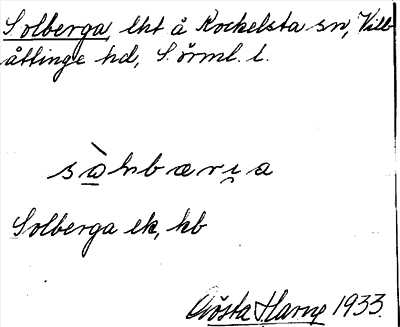 Solberga, lht å Rockelsta sn, Vill-
åttinge hd, Sörml. l.
sòhbærị a
Solberga ek, kb
Gösta Harne 1933.